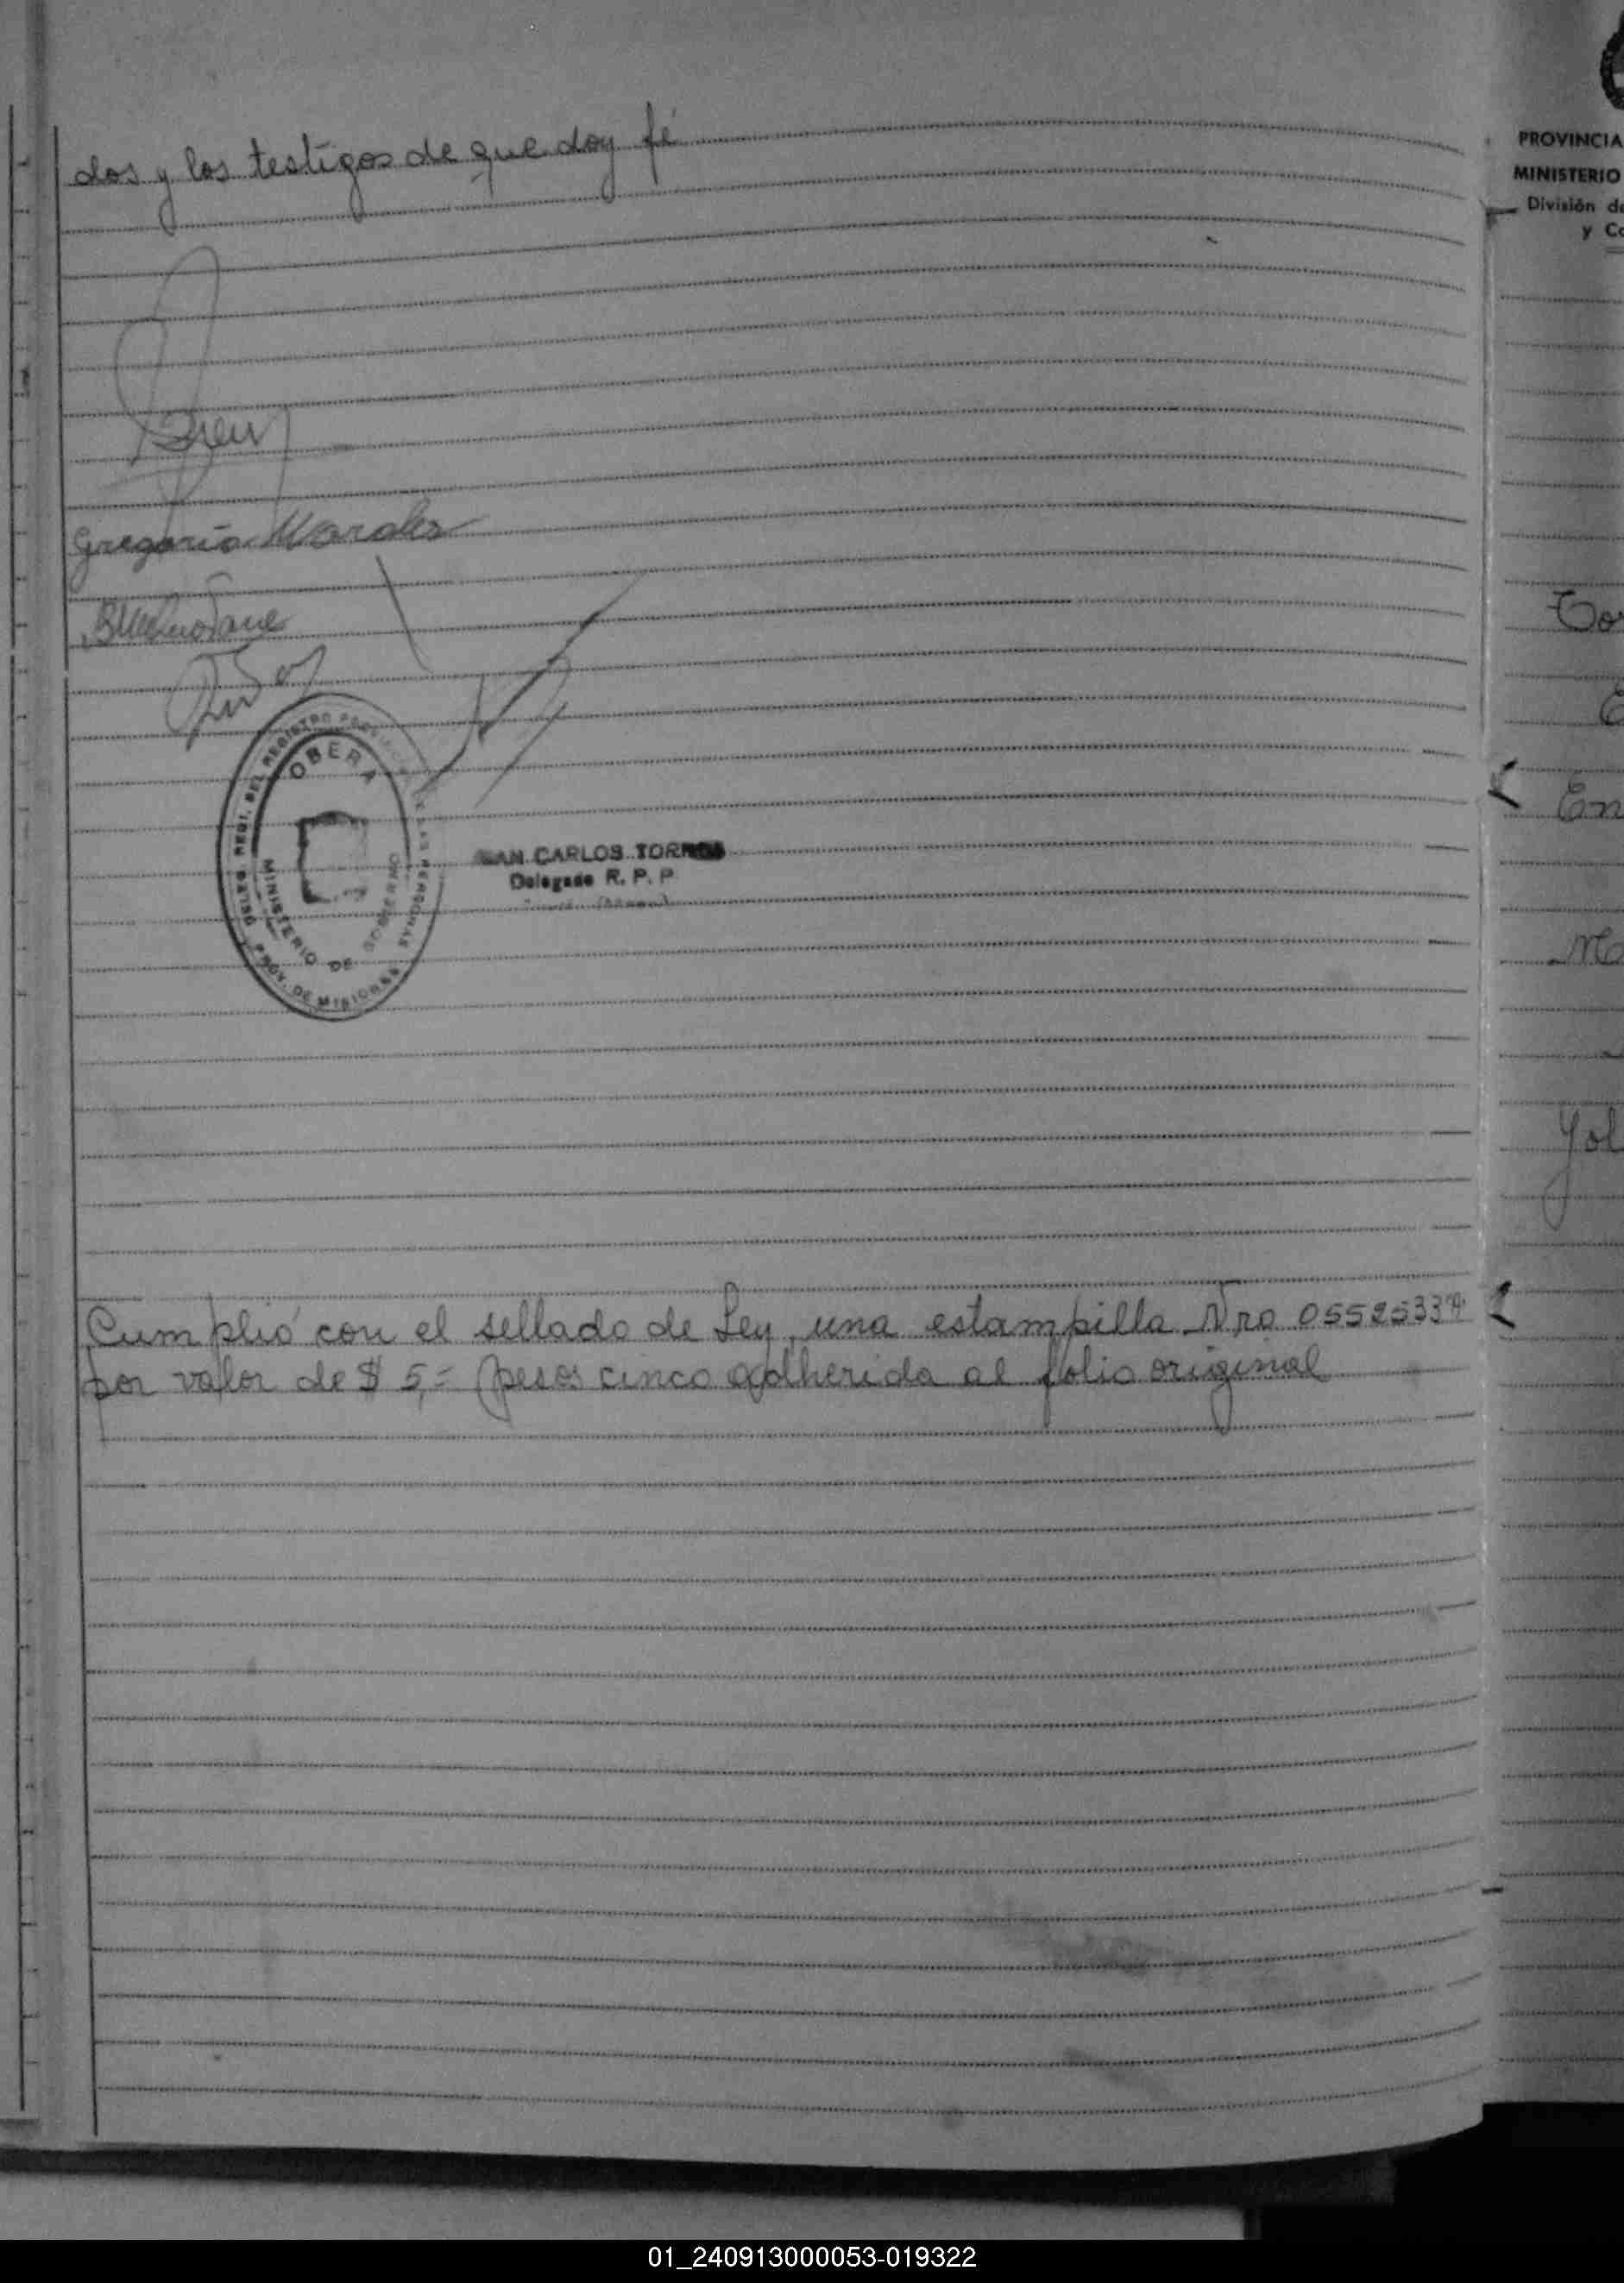 dos y los testigos de que doy fé
Gregorio Morales
OBERA
MINISTERIO DE GOBIERNO
PROV. DE MISIONES
CARLOS TORRES
Delegado R. P. P
Cumplió con el sellado de Ley, una estampilla Nro
por valor de $ 5,= (pesos cinco adherida al folio original
PROVINCIA
MINISTERIO
División de
y Co
En
01_240913000053-019322